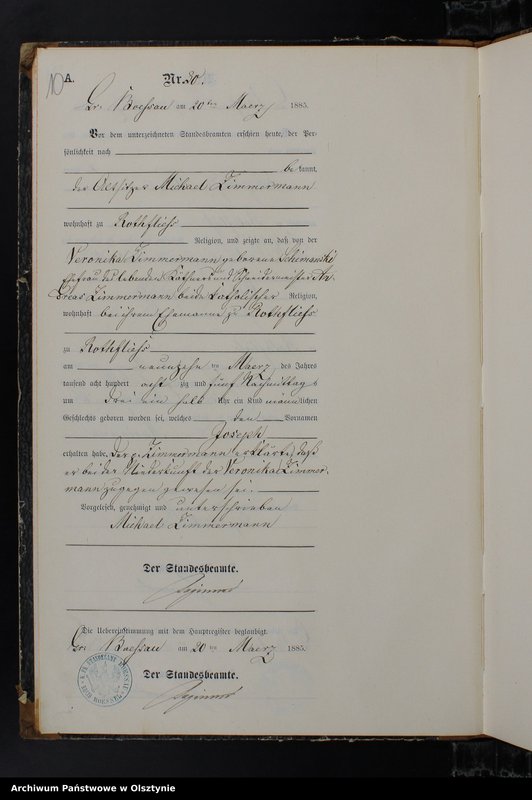 A.
Nr. 20.
Gr. Boessau am 20ten Maerz 1885.
Vor dem unterzeichneten Standesbeamten erschien heute, der Per-
sönlichkeit nach
bekannt,
der Altsitzer Michael Zimmermann
wohnhaft zu Rothfließ
Religion, und zeigte an, daß von der
Veronika Zimmermann geborene Schimanski
Ehefrau des lebenden Käthner und Schneidermeister An-
dreas Zimmermann beide katholischer Religion,
wohnhaft bei ihrem Ehemanne zu Rothfließ
zu Rothfließ
am neunzehn ten Maerz des Jahres
tausend acht hundert acht zig und fünf Nachmittags
um drei ein halb Uhr ein Kind männlichen
Geschlechts geboren worden sei, welches den Vornamen
Joseph
erhalten habe. Der p. Zimmermann erklärte, daß
er bei der Niederkunft der Veronika Zimmer-
mann zugegen gewesen sei.
Vorgelesen, genehmigt und unterschrieben
Michael Zimmermann
Der Standesbeamte.
Die Uebereinstimmung mit dem Hauptregister beglaubigt.
Gr. Boessau am 20ten Maerz 1885.
Der Standesbeamte.
Archiwum Państwowe w Olsztynie